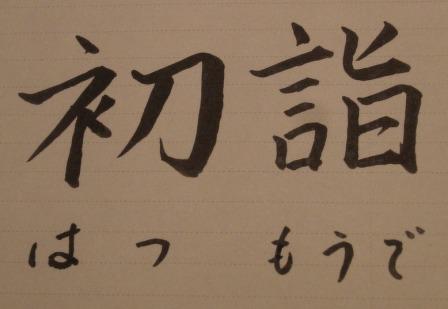 初詣
はつ もうで